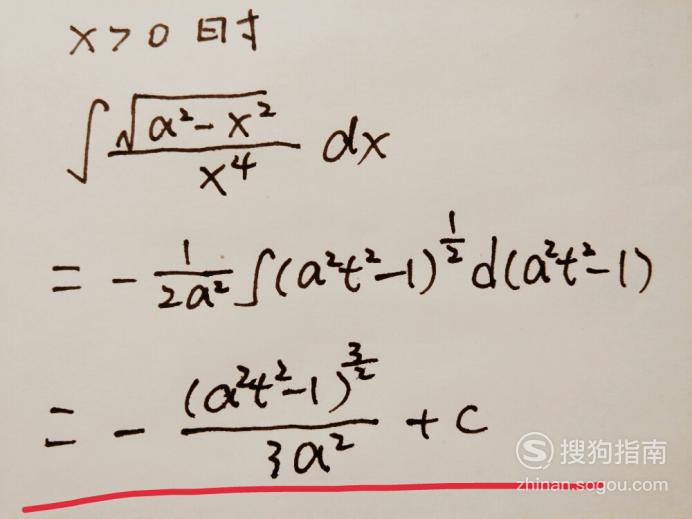 x>0时
∫ √(a²-x²) / x⁴ dx
= - 1/(2a²) ∫(a²t²-1)^(1/2) d(a²t²-1)
= - (a²t²-1)^(3/2) / (3a²) + c
S 搜狗指南
zhinan.sogou.com